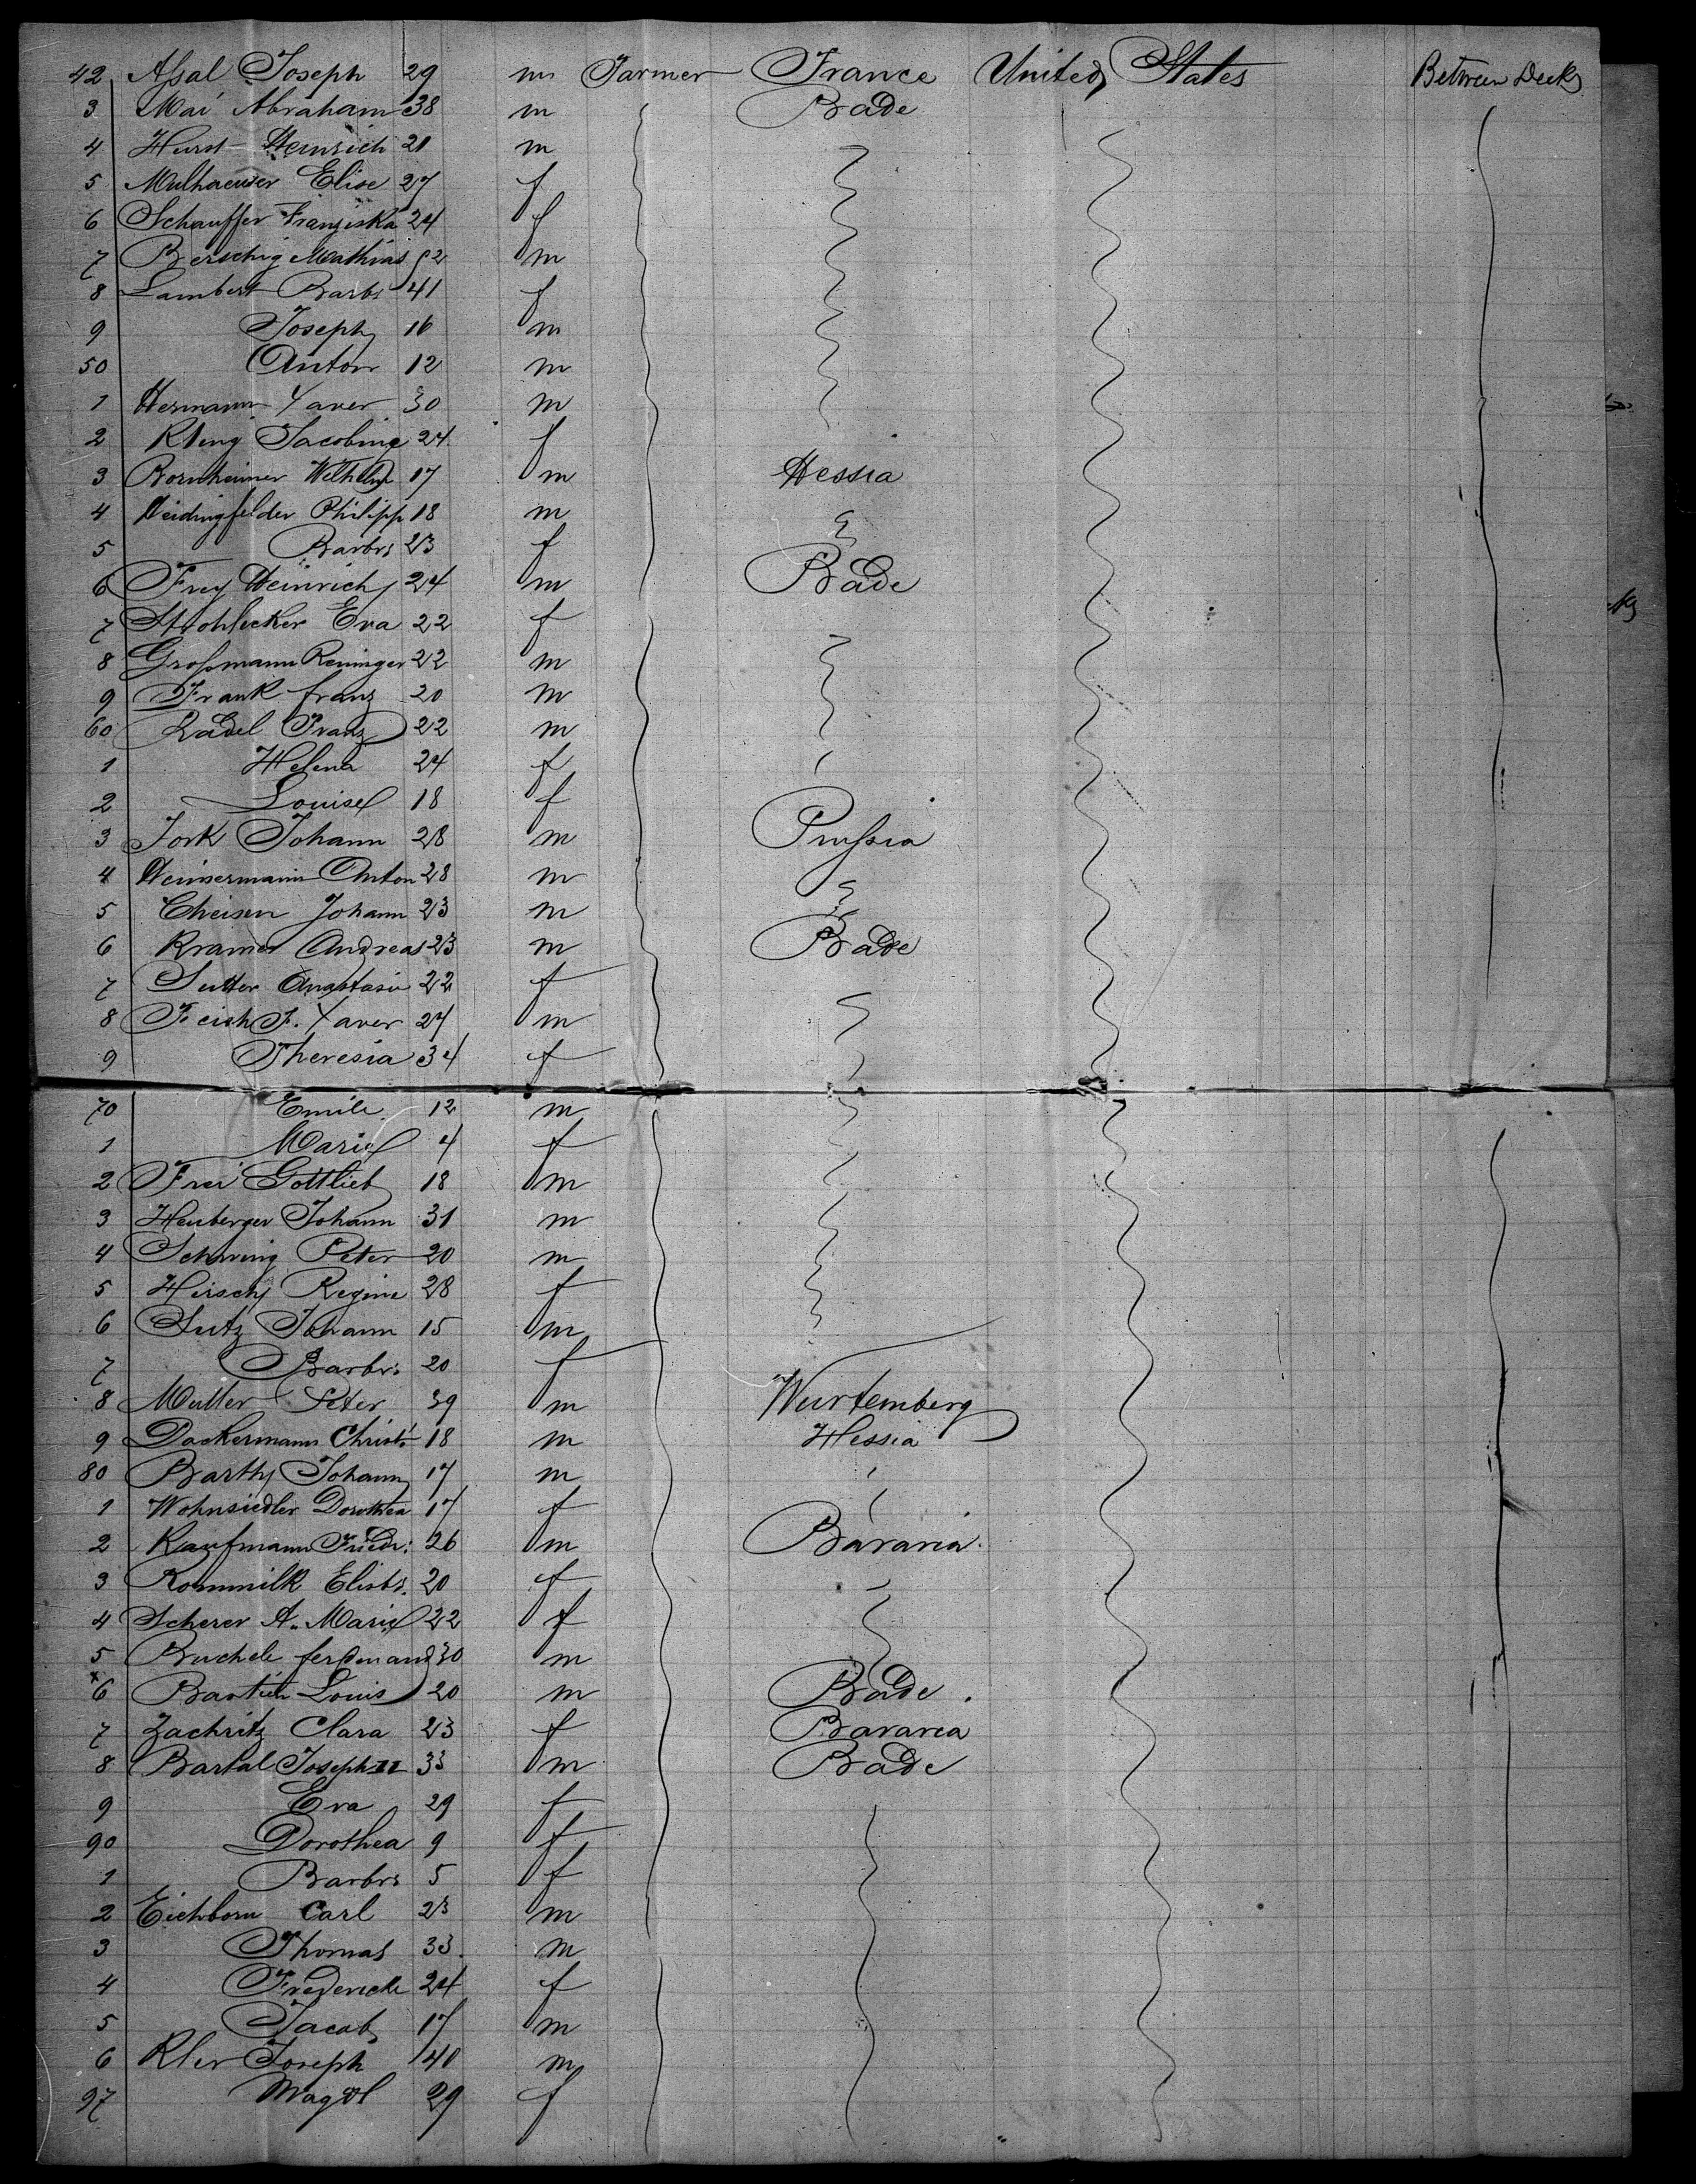 42 Assal Joseph 29 m Farmer France United States Between Decks
3 Mai Abraham 38 m Bade
4 Hurst Heinrich 21 m
5 Mulhaeuser Elise 27 f
6 Schauffer Franziska 24 f
7 Berschig Mathias 52 m
8 Lambert Barbr 41 f
9 Joseph 16 m
50 Anton 12 m
1 Hermann Xaver 30 m
2 Kling Jacobine 24 f
3 Bornheimer Wilhelm 17 m Hessia
4 Heidingfelder Philipp 18 m
5 Barbr 23 f
6 Frey Heinrich 24 m Bade
7 Strohlecker Eva 22 f
8 Grossmann Reninger 22 m
9 Frank franz 20 m
60 Ladel Franz 22 m
1 Helena 24 f
2 Louise 18 f
3 Jork Johann 28 m Prussia
4 Heinsermann Anton 28 m
5 Theisen Johann 23 m
6 Kramer Andreas 23 m Bade
7 Sutter Anastasia 22 f
8 Feish F. Xaver 27 m
9 Theresia 34 f
70 Emile 12 m
1 Marie 4 f
2 Frei Gottlieb 18 m
3 Heuberger Johann 31 m
4 Schwing Peter 20 m
5 Hirsch Regine 28 f
6 Lutz Johann 15 m
7 Barbr. 20 f
8 Muller Peter 39 m Wurtemberg
9 Dackermann Christ. 18 m Hessia
80 Barth Johann 17 m
1 Wohnsiedler Dorothea 17 f
2 Kaufmann Friedr: 26 m Bavaria
3 Rommilk Elisbt. 20 f
4 Scherer A. Marie 22 f
5 Bruchele ferdinand 30 m
x 6 Bastien Louis 20 m Bade
7 Zachritz Clara 23 f Bavaria
8 Bartal Joseph II 33 m Bade
9 Eva 29 f
90 Dorothea 9 f
1 Barbr 5 f
2 Eichborn Carl 23 m
3 Thomas 33 m
4 Frederick 24 f
5 Jacob 17 m
6 Kler Joseph 40 m
97 Magdl 29 f